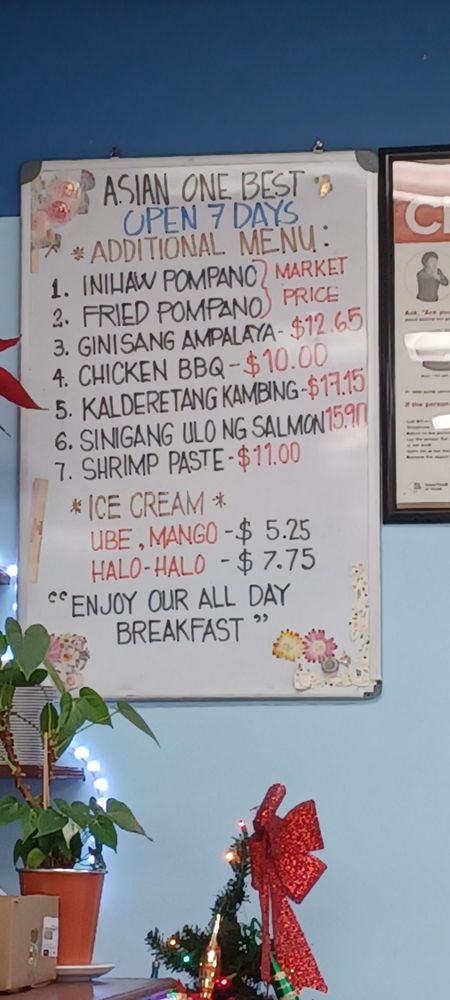 ASIAN ONE BEST
OPEN 7 DAYS
* ADDITIONAL MENU:
1. INIHAW POMPANO } MARKET
2. FRIED POMPANO } PRICE
3. GINISANG AMPALAYA - $12.65
4. CHICKEN BBQ - $10.00
5. KALDERETANG KAMBING - $17.15
6. SINIGANG ULO NG SALMON 15.90
7. SHRIMP PASTE - $11.00
* ICE CREAM *
UBE, MANGO - $ 5.25
HALO-HALO - $ 7.75
“ENJOY OUR ALL DAY
BREAKFAST”
If the person